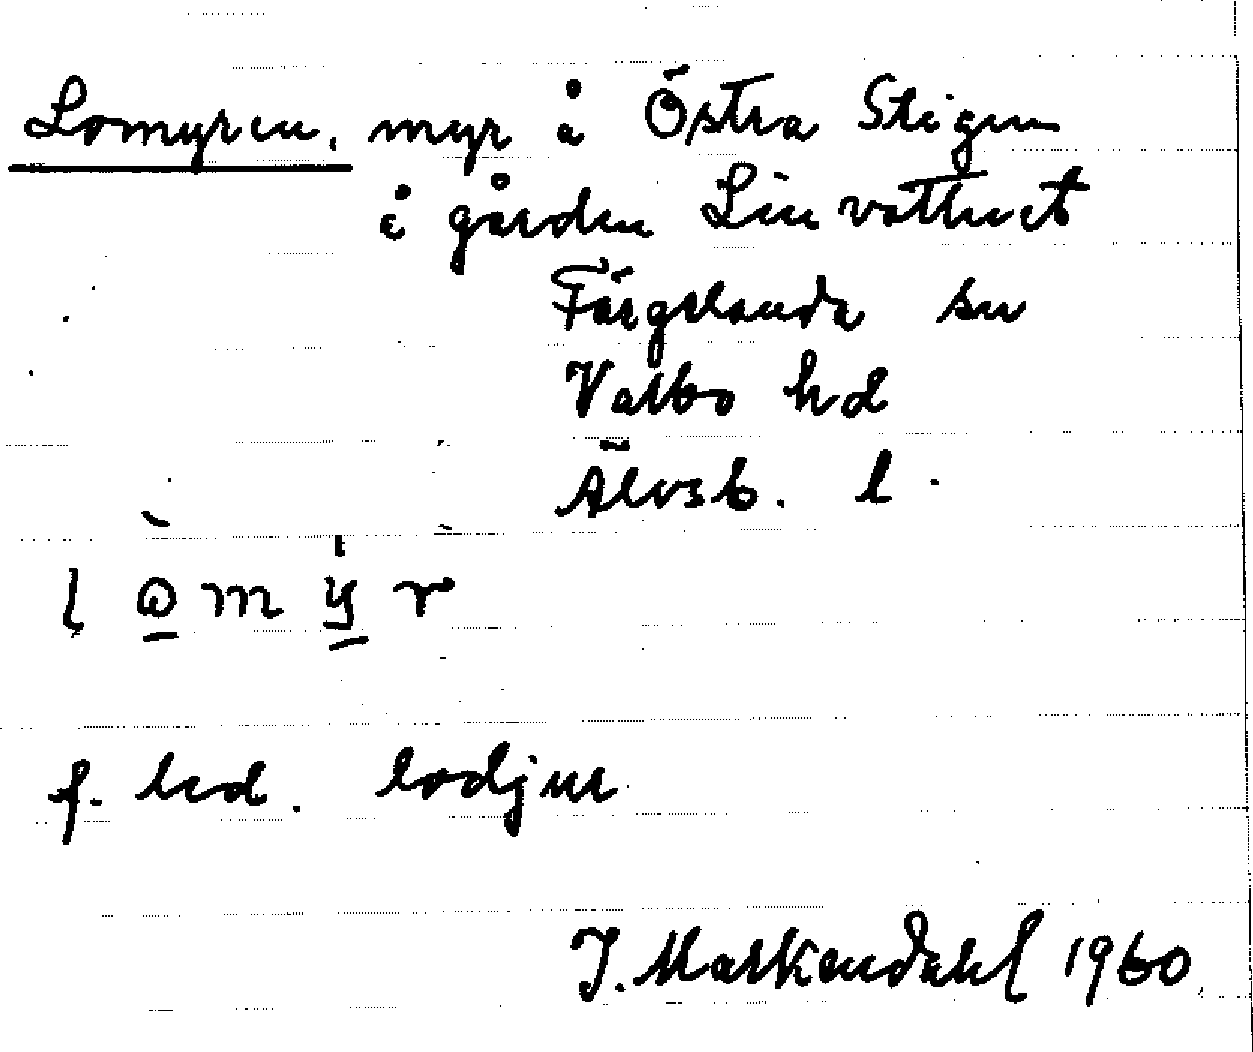 Lomyren, myr å Östra Stigen
å gården Linvattnet
Färgelanda sn
Valbo hd
Älvsb. l.
l o m y r
f. led. lodjur
J. Markendahl 1960